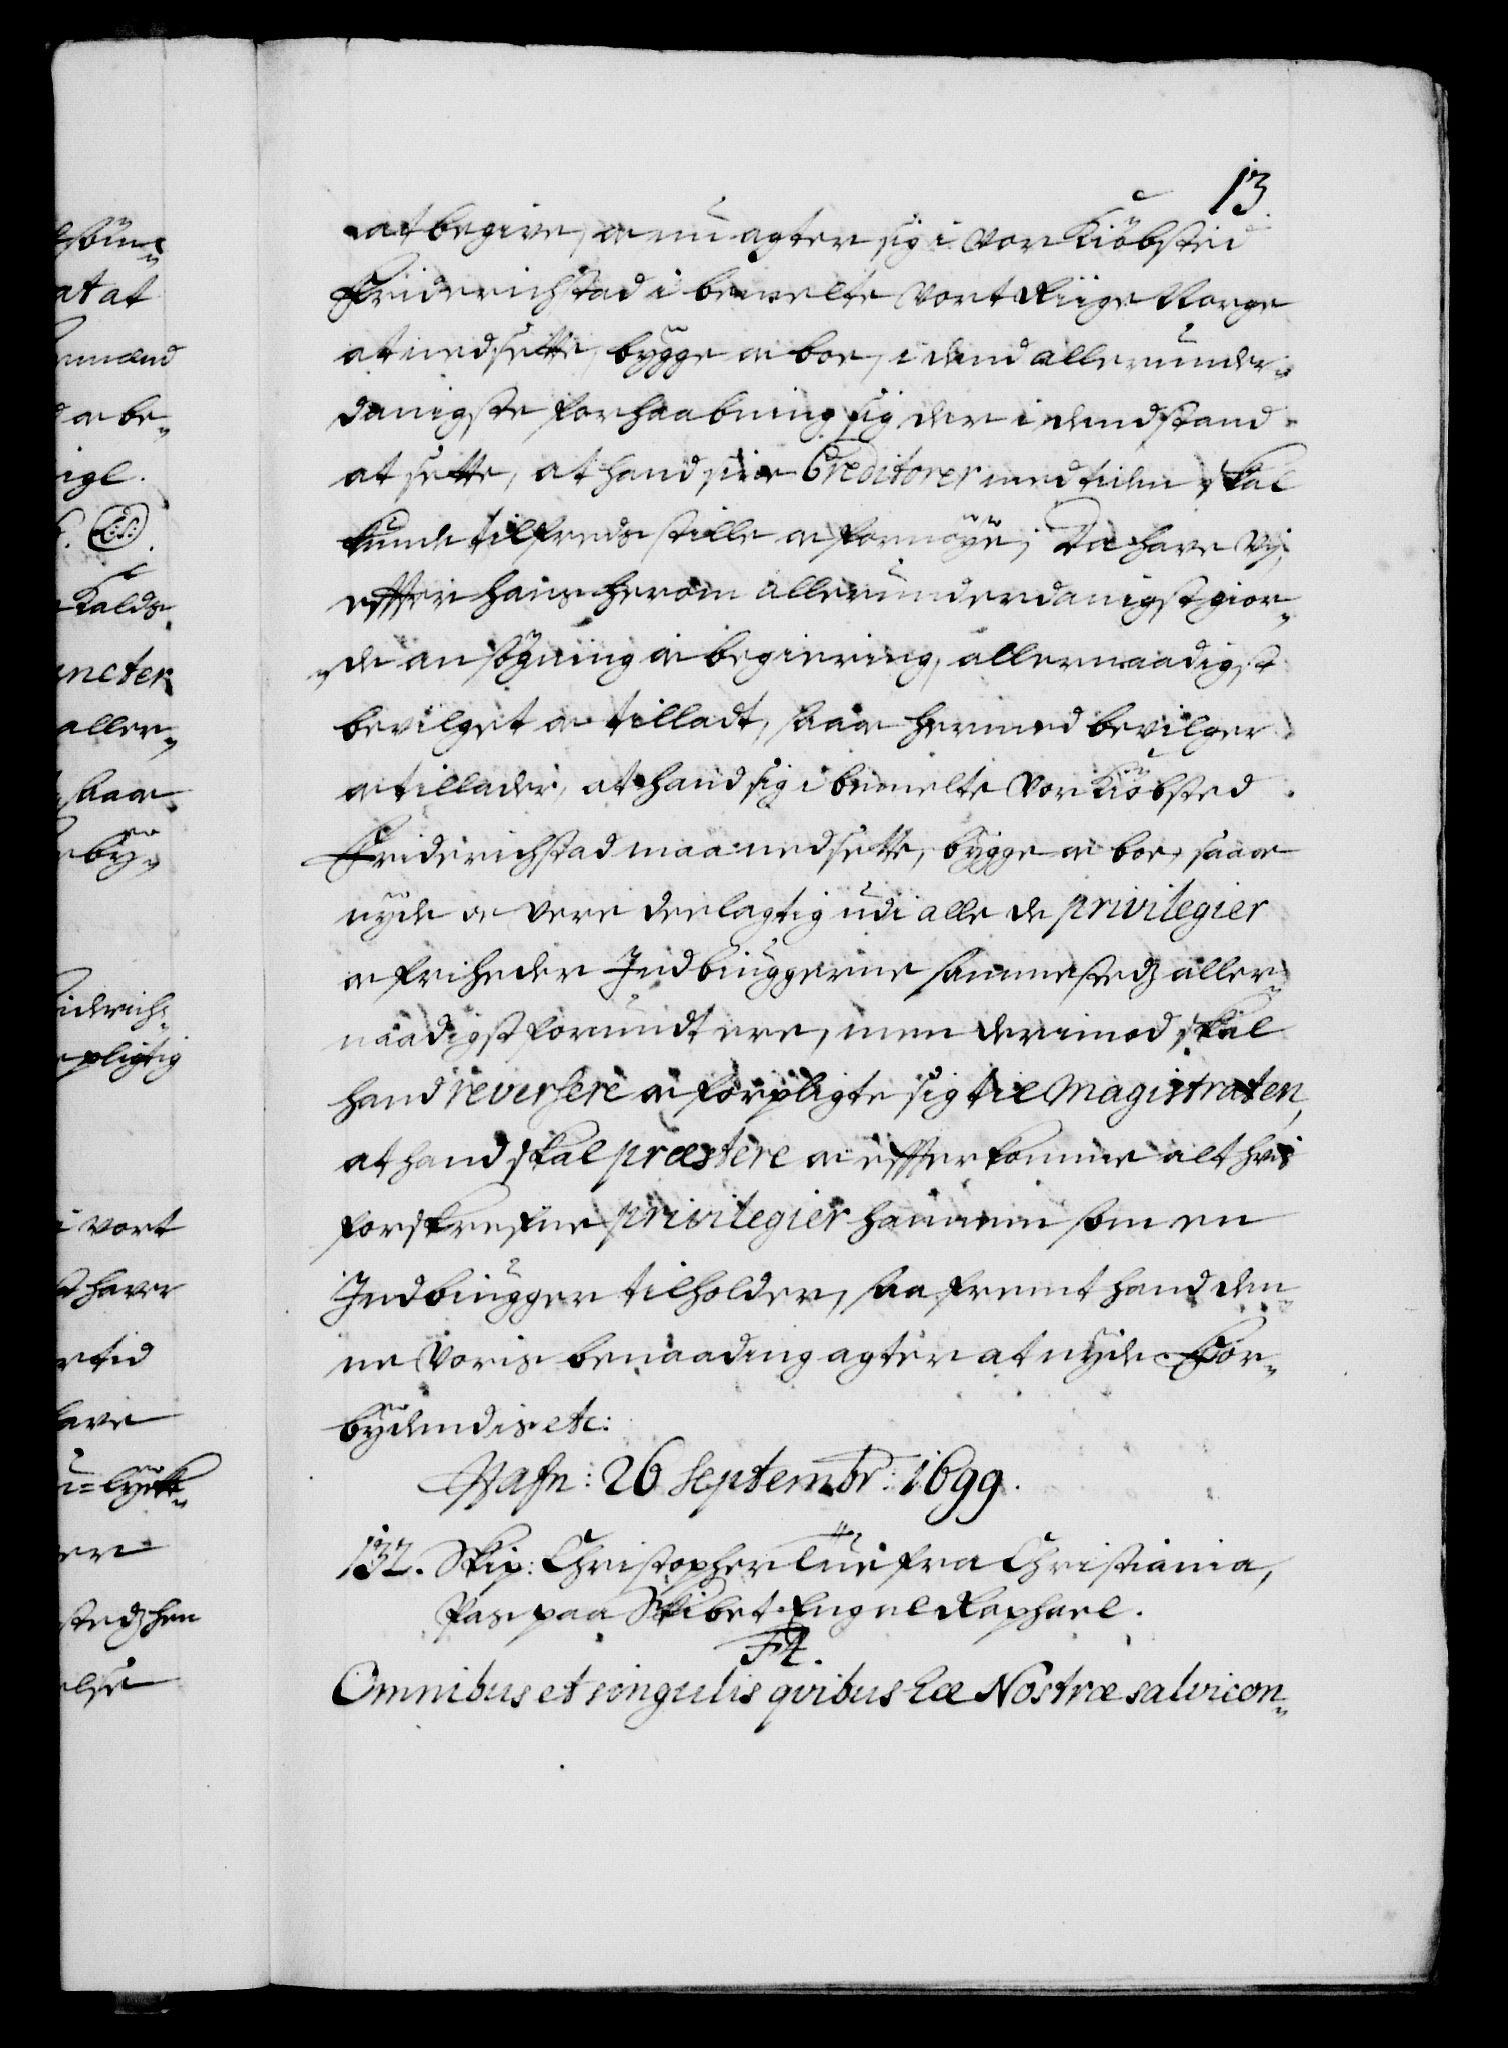 13.
at begive, og nu agter sig i vor Kiöbsted
Friderichstad i bemelte vort Riige Norge
at nedsette, bygge og boe, i dend allerunder„
danigste forhaabning sig der i dend stand
at sette, at hand sine Creditorer med tiden skal
kunde tilfreds stille og fornöye; Da have Vj
effter hans herom allerunderdanigst gior„
„de ansögning og begiering, allernaadigst
bevilget og tilladt, saa og hermed bevilger
og tillader, at hand sig i bemelte vor Kiöbsted
Friderichstad maa nedsette, bygge og boe, saa og
nyde og vere deelagtig udi alle de privilegier
og friheder Indbiuggerne sammestedz aller„
naadigst forundt ere, men derimod skal
hand reversere og forpligte sig til Magistraten,
at hand skal præstere og effterkomme alt hvis
forskrefne privilegier hannem som en
Indbiugger tilholder, saafremt hand den„
ne voris benaading agter at nyde. For„
bydendis etc:
Hafn: 26 Septembr: 1699.
132. Skip: Christopher Tue fra Christiania,
Pas paa Skibet Engel Raphael.
F4.
Omnibus et singulis qvibus hæ Nostræ salvi con„
at at
og be„
igl.
Kalds
ncter
aller„
saa og
eby„
iderich„
pligtig
i vort
haver
tid
have
stedz hen
else